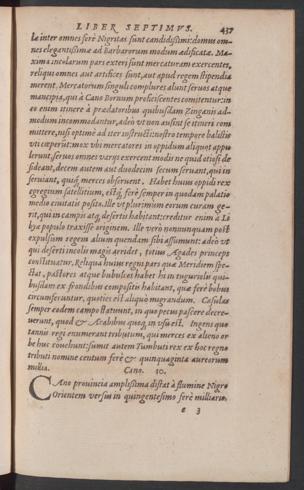 LIBER SEPTIMVS. 437
læ inter omnes ferè Nigritas sunt candidissimi: domus om-
nes elegantissimæ ad Barbarorum modum ædificatæ. Ma-
xima incolarum pars exteri sunt mercaturam exercentes,
reliqui omnes aut artifices sunt, aut apud regem stipendia
merent. Mercatorum singuli complures alunt seruos atque
mancipia, qui à Cano Bornum proficiscentes comitentur: in
eo enim itinere à prædatoribus quibusdam Zinganis ad-
modum incommodantur, adeò vt non ausint se itineri com
mittere, nisi optimè ad iter instructi: nostro tempore balistis
vti cœperūt: mox vbi mercatores in oppidum aliquod appu
lerunt, seruos omnes varijs exercent modis ne quid otiosi de
sideant, decem autem aut duodecim secum seruant, qui in
seruiant, quiq́ merces obseruent. Habet huius oppidi rex
egregium satellitium, estq́ ferè semper in quodam palatio
medio ciuitatis posito. Ille vt plurimùm eorum curam ge-
rit, qui in campis atq́ desertis habitant: creditur enim à Li
bya populo traxisse originem. Ille verò nonnunquam post
expulsum regem alium quendam sibi assumunt: adeò vt
qui deserti incolis magis arridet, totius Agades princeps
constituatur. Reliqua huius regni pars quæ Meridiem spe-
ctat, pastores atque bubulcos habet hi in tuguriolis qui-
busdam ex frondibus compositis habitant, quæ ferè bobus
circumferuntur, quoties est aliquò migrandum. Casulas
semper eodem campo statuunt, in quo pecus pascere decre-
uerunt, quod & Arabibus quoq́ in vsu est. Ingens quo
tannis regi enumerant tributum, qui merces ex alieno or
be huc conuehunt: sumit autem Tumbuti rex ex hoc regno
tributi nomine centum ferè & quinquaginta aureorum
millia.
Cano. 10.
CAno prouincia amplissima distat à flumine Nigro
Orientem versùs in quingentesimo ferè milliario.
e 3